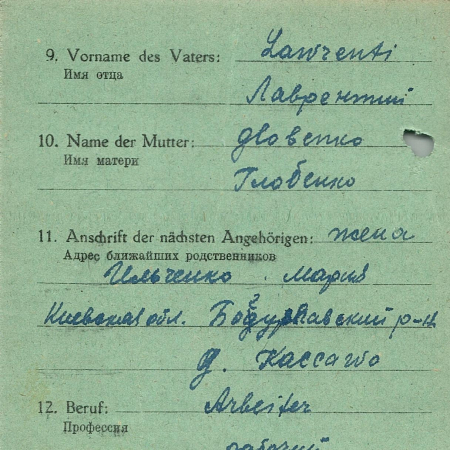 9. Vorname des Vaters: Lawrenti
Имя отца
Лаврентий
10. Name der Mutter: Glovenko
Имя матери
Гловенко
11. Anschrift der nächsten Angehörigen: жена
Адрес ближайших родственников
Ильченко Мария
Киевская обл. р-н
д.
12. Beruf: Arbeiter
Профессия
рабочий